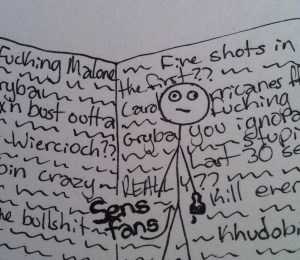 Fucking Malone
ryba
bost outta
Wiercioch??
in crazy
he bullshit
Five shots in
the first??
Caro rricanes
fucking
Gryba you ignora
stupi
Last 30 se
REALLY??
Kill ever
Khudobi
Sens
fans